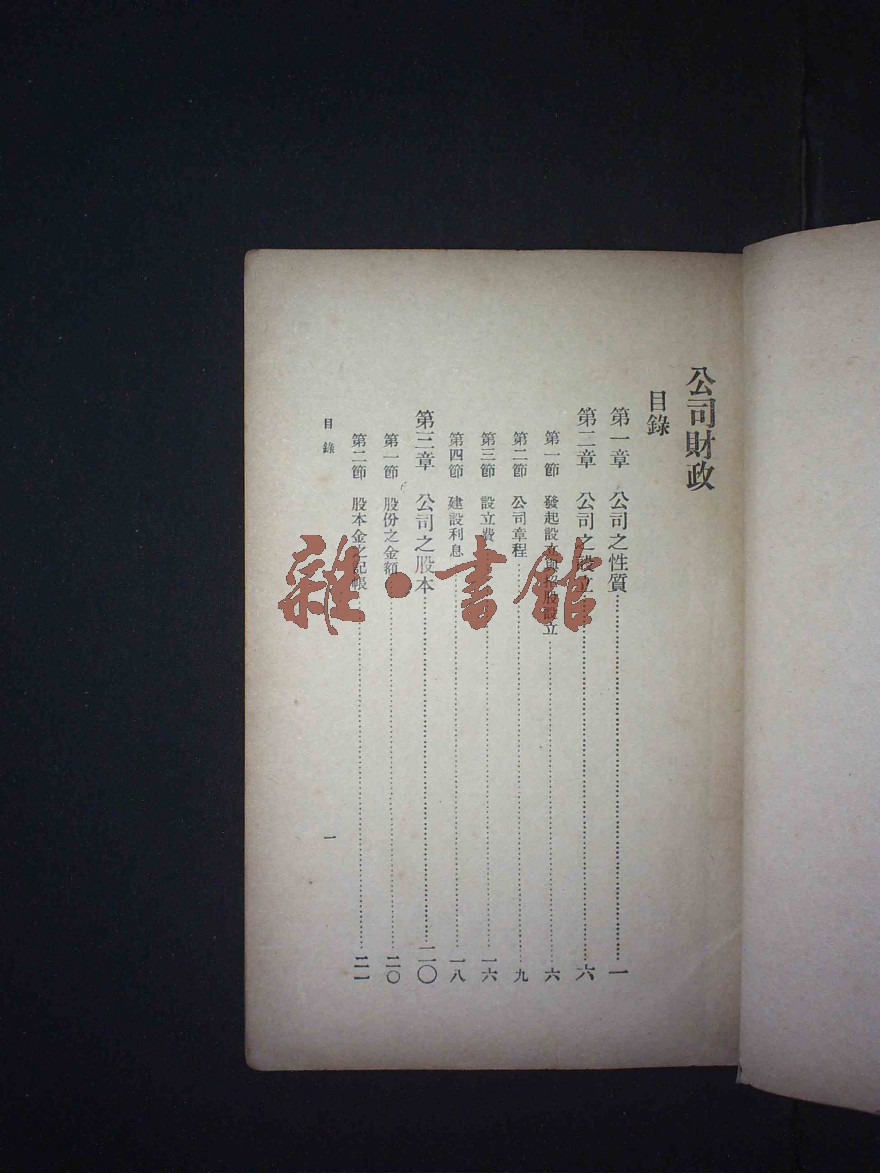 公司財政
目錄
第一章 公司之性質 一
第二章 公司之設立 六
第一節 發起設立與招股設立 六
第二節 公司章程 九
第三節 設立費 一六
第四節 建設利息 一八
第三章 公司之股本 二〇
第一節 股份之金額 二〇
第二節 股本金之記帳 二一
目錄
一
雜·書館